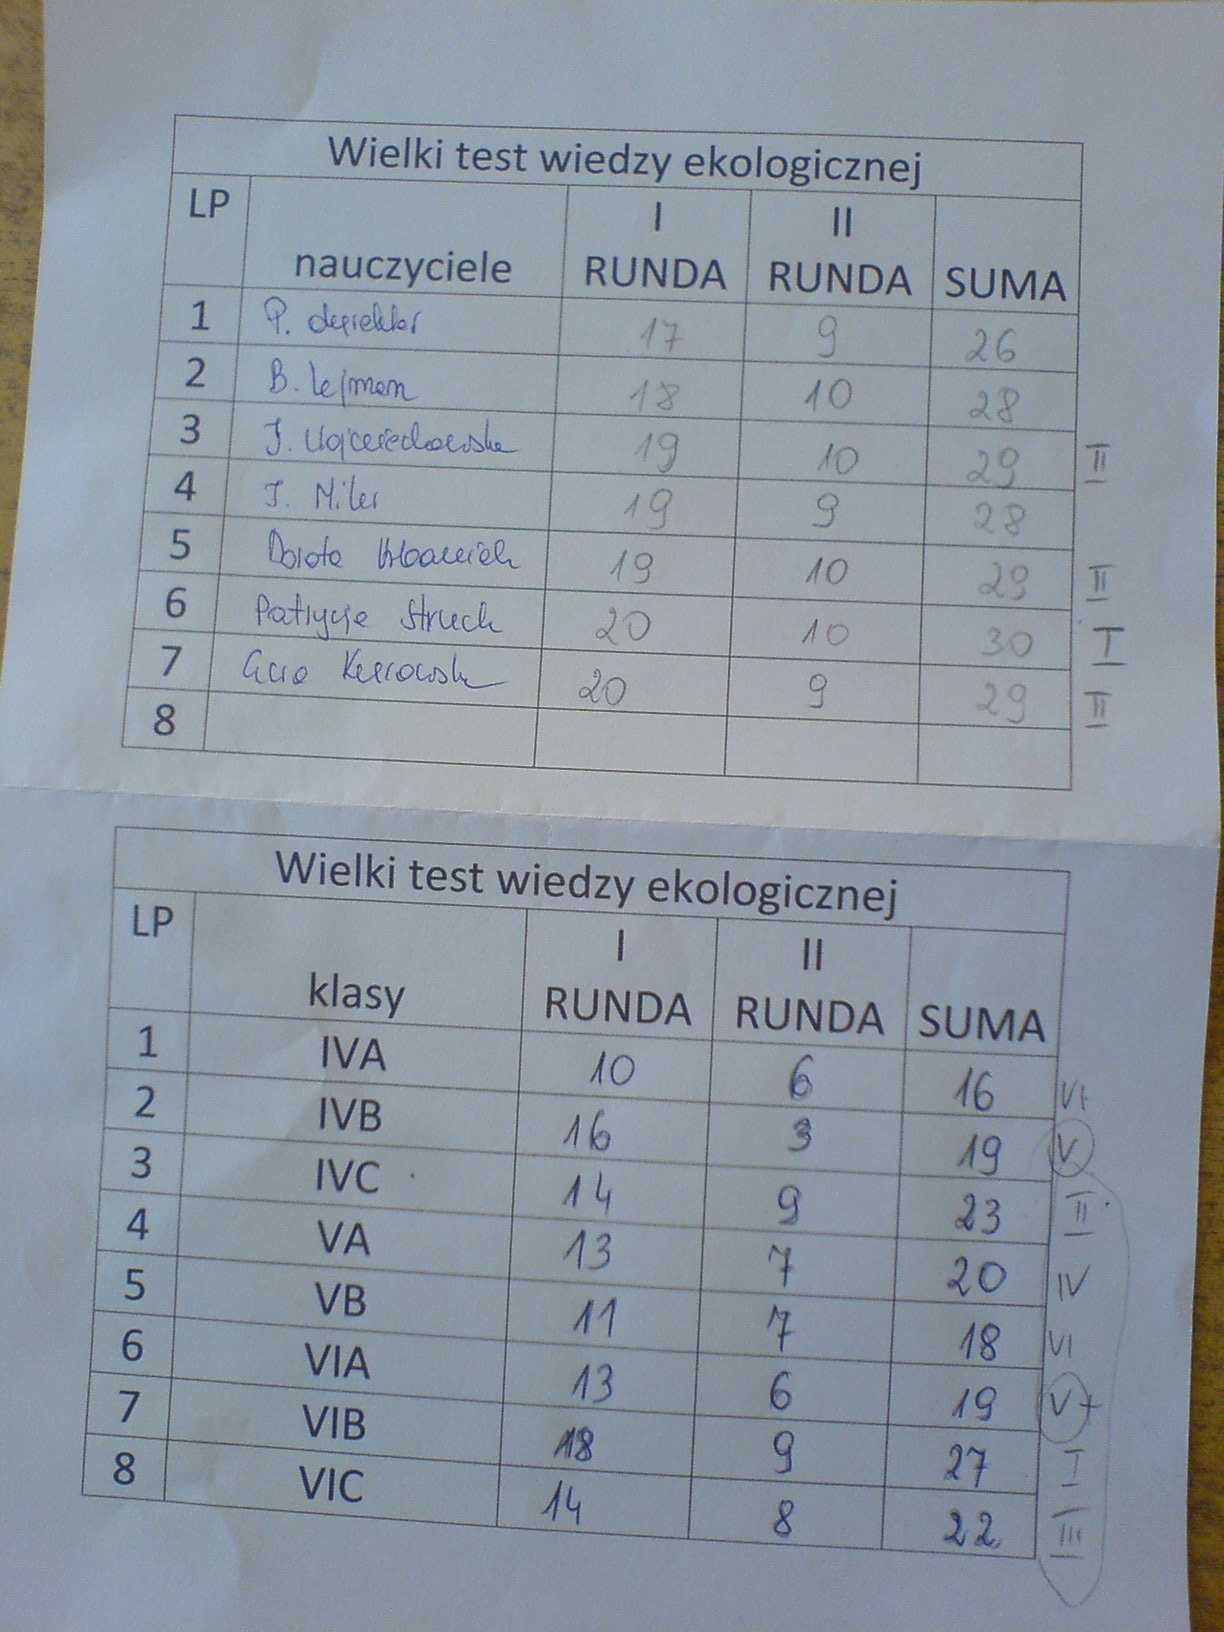 Wielki test wiedzy ekologicznej
LP nauczyciele I RUNDA II RUNDA SUMA
1 P. dyrektor 17 9 26
2 B. Lejman 18 10 28
3 J. Wojciechowska 19 10 29 II
4 J. Miler 19 9 28
5 Dorota 19 10 29 II
6 Patrycja Struck 20 10 30 I
7 20 9 29 II
8
Wielki test wiedzy ekologicznej
LP klasy I RUNDA II RUNDA SUMA
1 IVA 10 6 16
2 IVB 16 3 19 V
3 IVC 14 9 23 II
4 VA 13 7 20 IV
5 VB 11 7 18 VI
6 VIA 13 6 19 V +
7 VIB 18 9 27 I
8 VIC 14 8 22 III